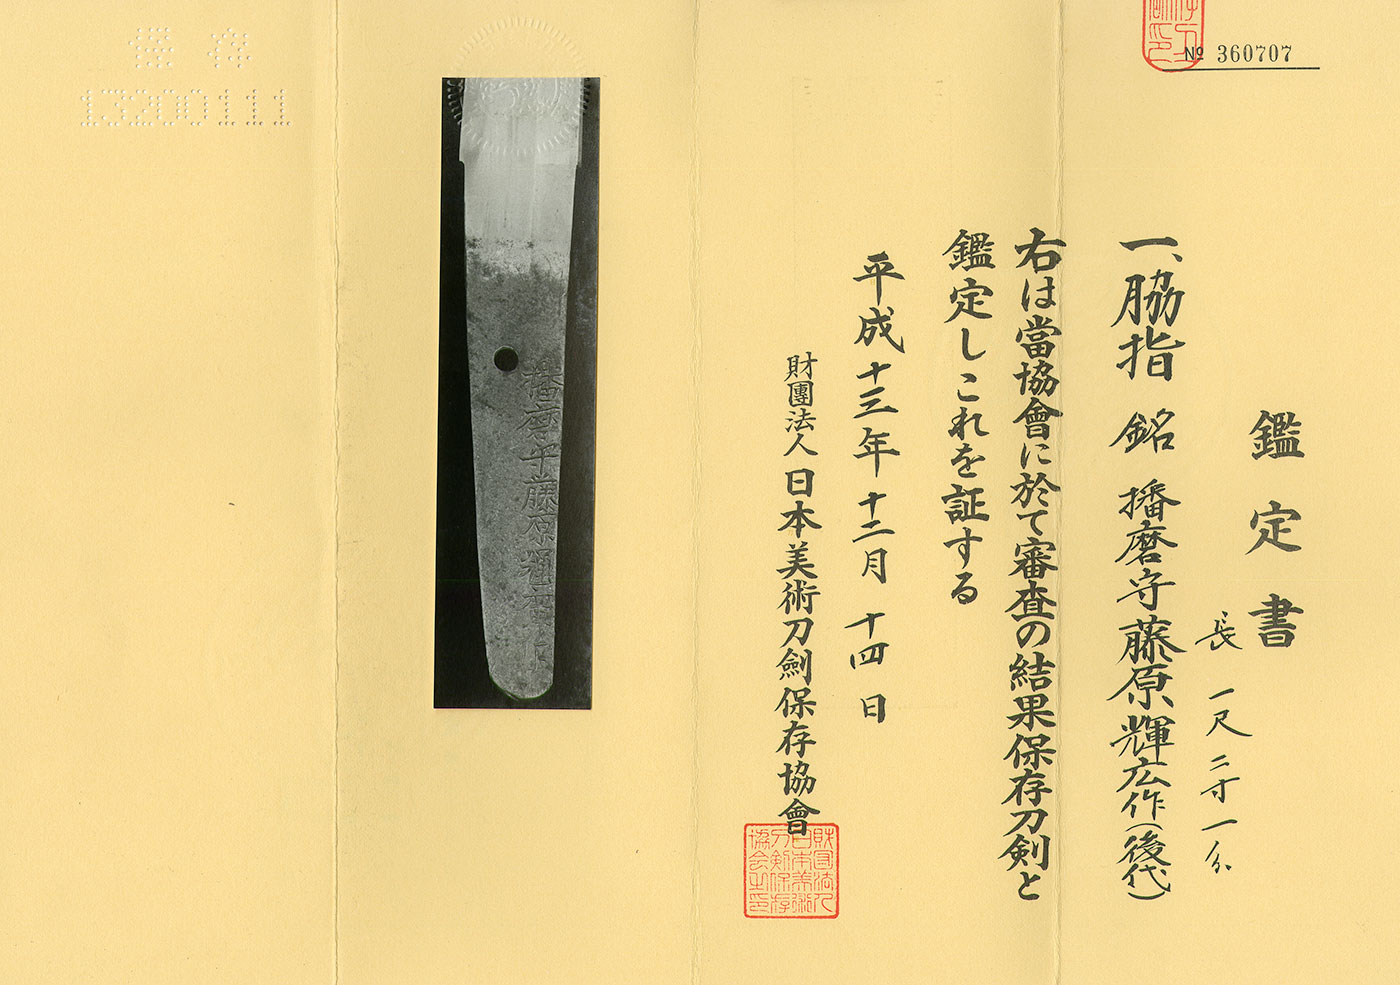 № 360707
鑑定書
一、脇指 銘 播磨守藤原輝広作(後代)
長 一尺二寸一分
右は當協會に於て審査の結果保存刀剣と
鑑定しこれを証する
平成十三年十二月十四日
財團法人日本美術刀劍保存協會
財団法人
日本美術
刀剣保存
協会之印
播磨守藤原輝廣作
保存
13200111